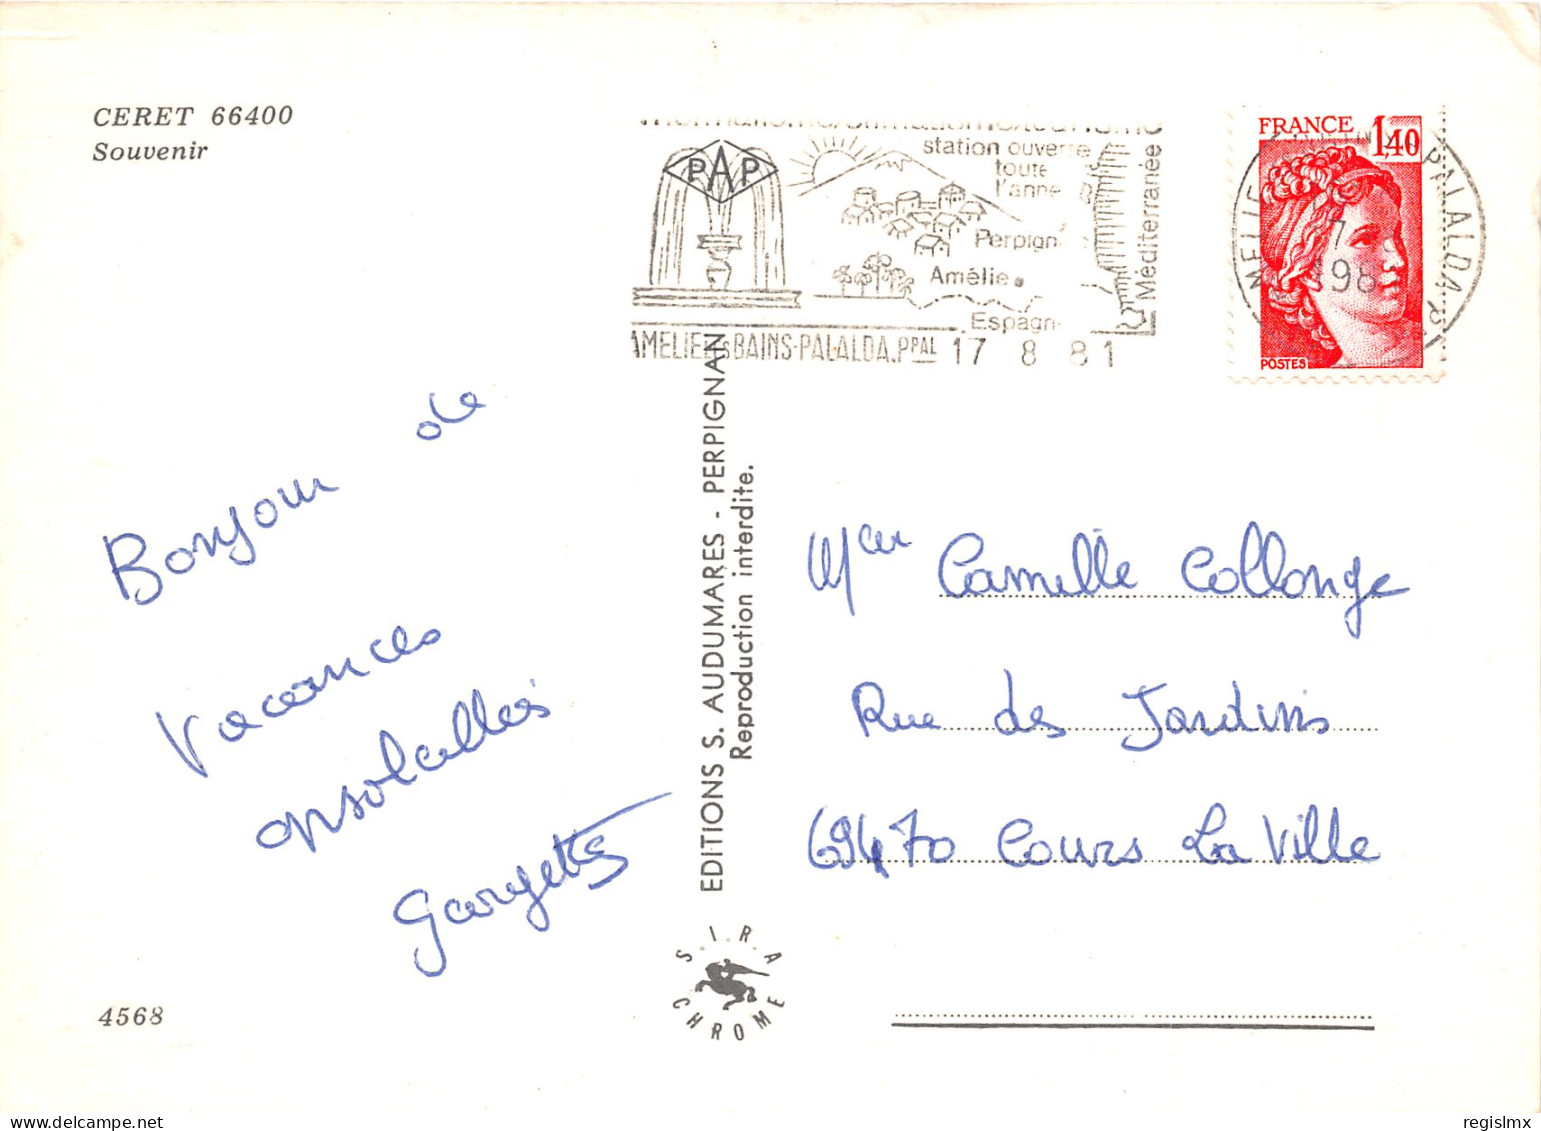 CERET 66400
Souvenir
station ouverte
toute
l'année
PAP
Perpign
Amélie
Espagn
Méditerranée
AMELIE LES BAINS-PALALDA.PPAL 17 8 81
FRANCE 1,40
POSTES
198
PALALDA
Bonjour de
vacances
ensoleillées
Georgette
EDITIONS S. AUDUMARES - PERPIGNAN
Reproduction interdite.
Camille Collonge
Rue des Jardins
69470 Cours La Ville
SIRA
CHROME
4568
regislmx